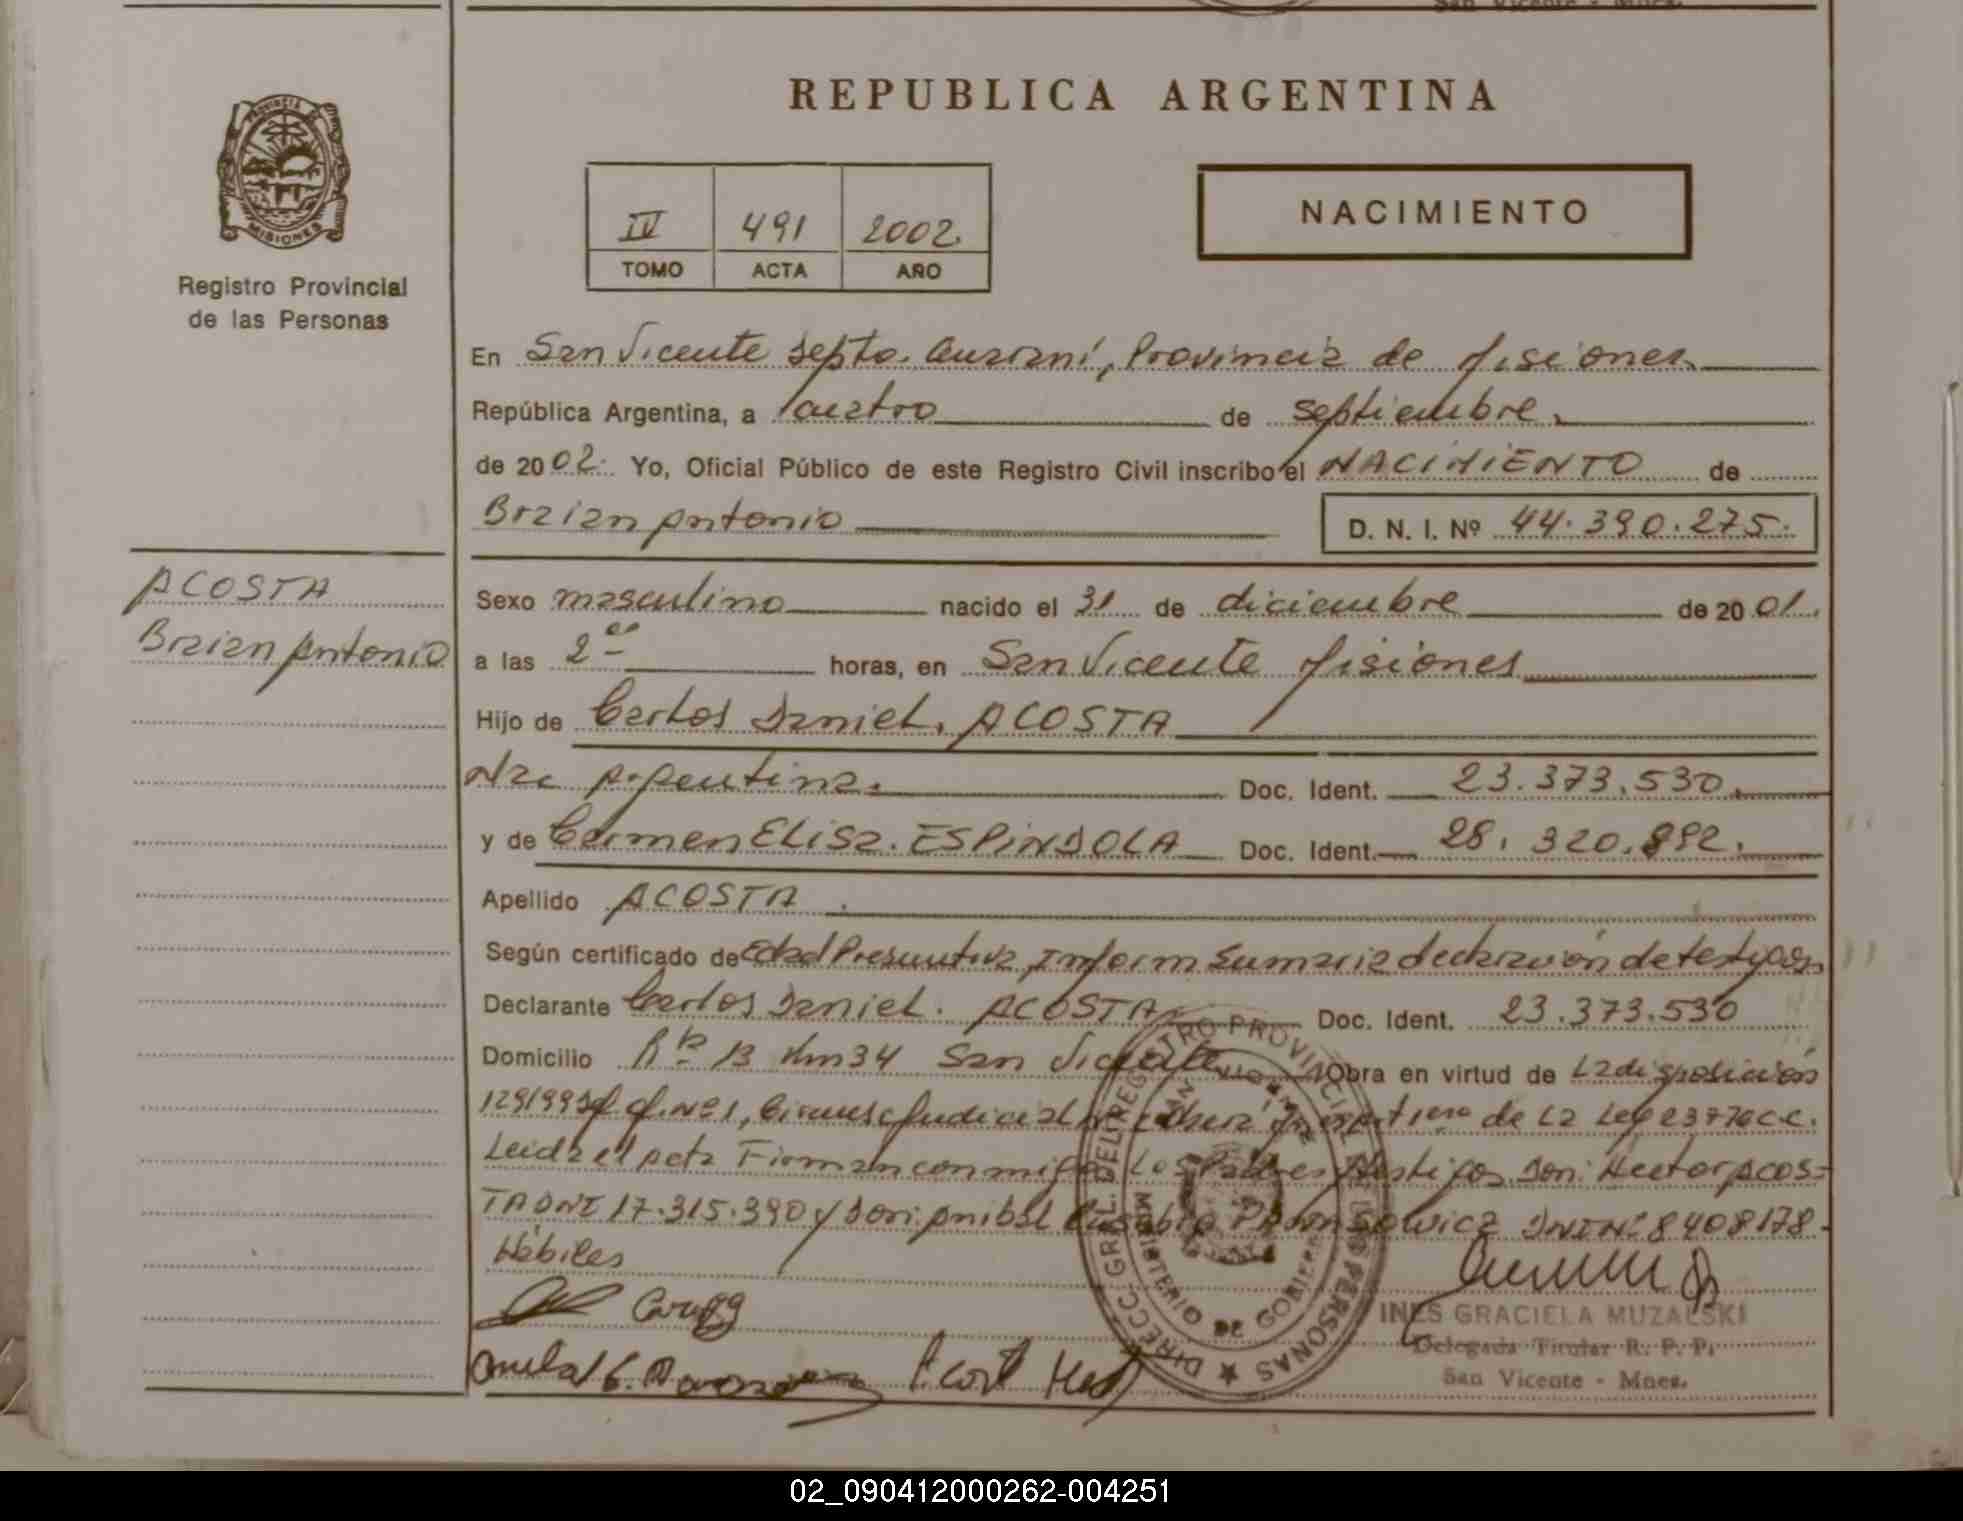 REPUBLICA ARGENTINA
PROVINCIA DE MISIONES
Registro Provincial
de las Personas
IV 491 2002.
TOMO ACTA AÑO
NACIMIENTO
En San Vicente Depto. Guaraní, Provincia de Misiones
República Argentina, a Cuatro de septiembre.
de 2002. Yo, Oficial Público de este Registro Civil inscribo el NACIMIENTO de
Braian Antonio D. N. I. Nº 44.390.275.
ACOSTA
Braian Antonio
Sexo masculino nacido el 31 de diciembre de 2001.
a las 2 horas, en San Vicente Misiones
Hijo de Carlos Daniel. ACOSTA
Nac Argentina. Doc. Ident. 23.373.530.
y de Carmen Elisa. ESPINDOLA Doc. Ident. 28.320.892.
Apellido ACOSTA.
Según certificado de Edad Presuntiva, Inform Sumaria declaración de testigos
Declarante Carlos Daniel. ACOSTA Doc. Ident. 23.373.530
Domicilio Rta 13 Km 34 San Vicente Obra en virtud de La disposición
129/99 Nº 1, Circunsc Judicial de la Ley 23776 C.C.
Leida el Acta Firman conmigo Los Padres y testigos Don: Hector ACOS=
TA DNI 17.315.390 y Don: Anibal Eusebio DNI Nº 8408178-
Hábiles
DIRECC. GRAL. DEL REGISTRO PROVINCIAL DE LAS PERSONAS
MINISTERIO DE GOBIERNO
INES GRACIELA MUZALSKI
Delegada Titular R. P. P.
San Vicente - Mnes.
02_090412000262-004251